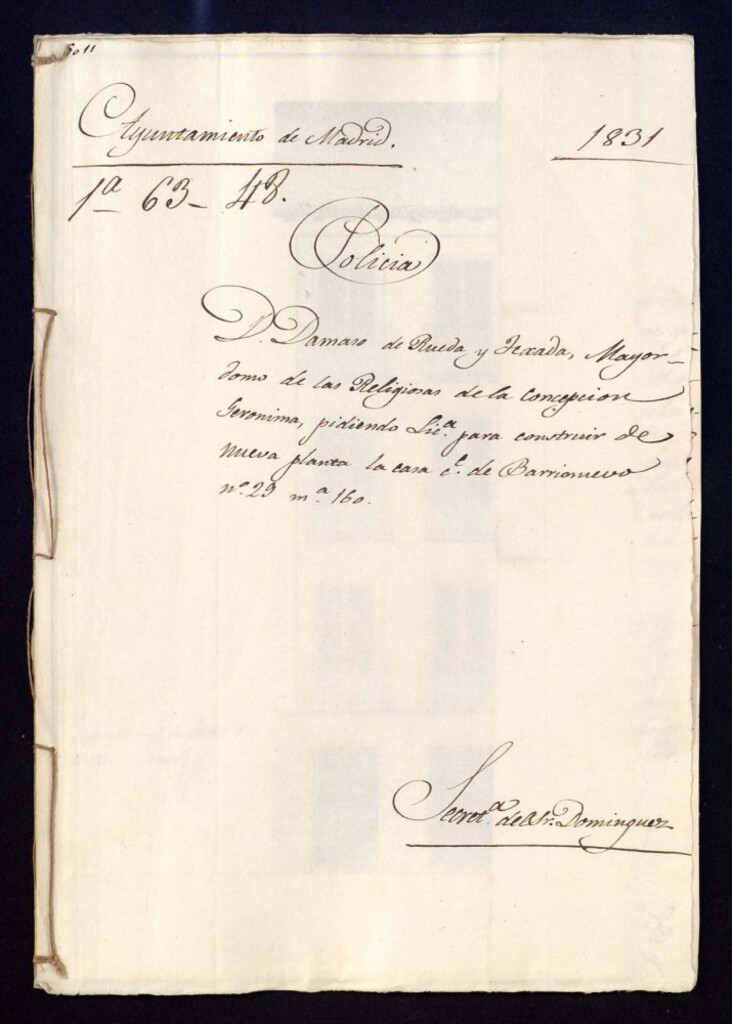 Ayuntamiento de Madrid.
1831
1ª 63- 48.
Policia
D. Damaso de Rueda y Texada, Mayor-
domo de las Religiosas de la Concepcion
Geronima, pidiendo Lic.ª para construir de
nueva planta la casa c.e de Barrionuevo
nº. 29 m.ª 160.
Secret.ª del Sr. Dominguez